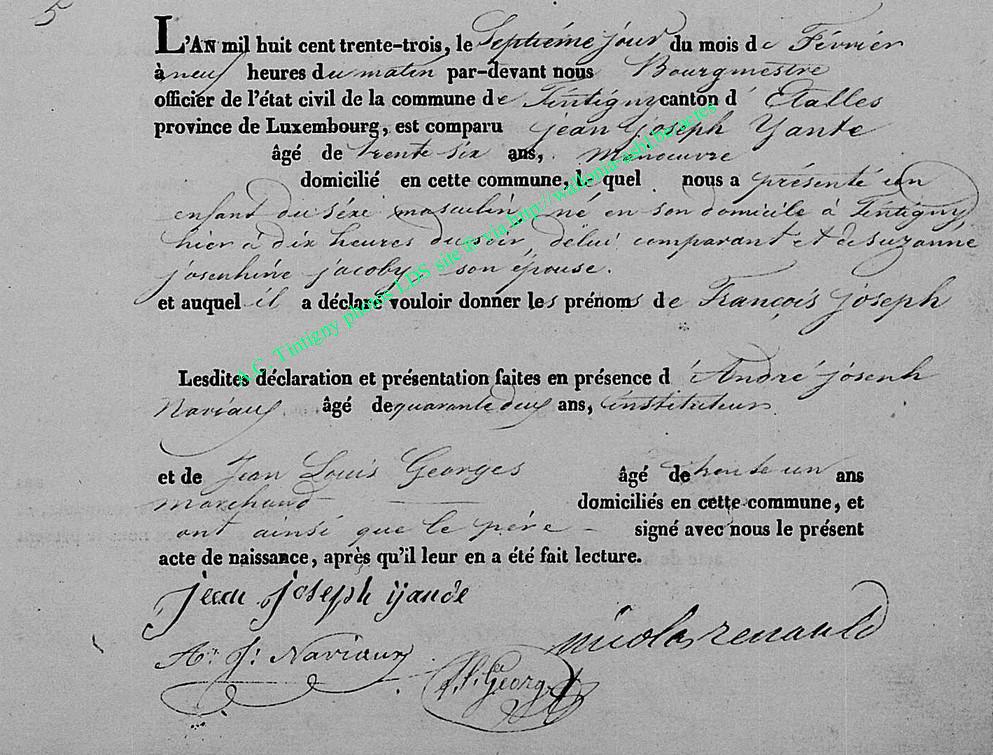 5
L'AN mil huit cent trente-trois, le Septième jour du mois de Février
à neuf heures du matin par-devant nous Bourgmestre
officier de l'état civil de la commune de Tintigny canton d' Etalles
province de Luxembourg, est comparu jean joseph Yante
âgé de trente six ans, manoeuvre
domicilié en cette commune, le quel nous a présenté un
enfant du séxe masculin, né en son domicile à Tintigny
hier à dix heures du soir, délui comparant et de suzanne
josephine jacoby, son épouse.
et auquel il a déclaré vouloir donner les prénoms de François joseph
Lesdites déclaration et présentation faites en présence d' André joseph
Naviaux âgé de quarante deux ans, instituteur
et de Jean Louis Georges âgé de trente un ans
marchand domiciliés en cette commune, et
ont ainsi que le père signé avec nous le présent
acte de naissance, après qu'il leur en a été fait lecture.
jean joseph yande
nicolas renauld
An. J. Naviaux
Georges
A.C. Tintigny photos LDS site @ via http://wallonia-asbl.be/actes